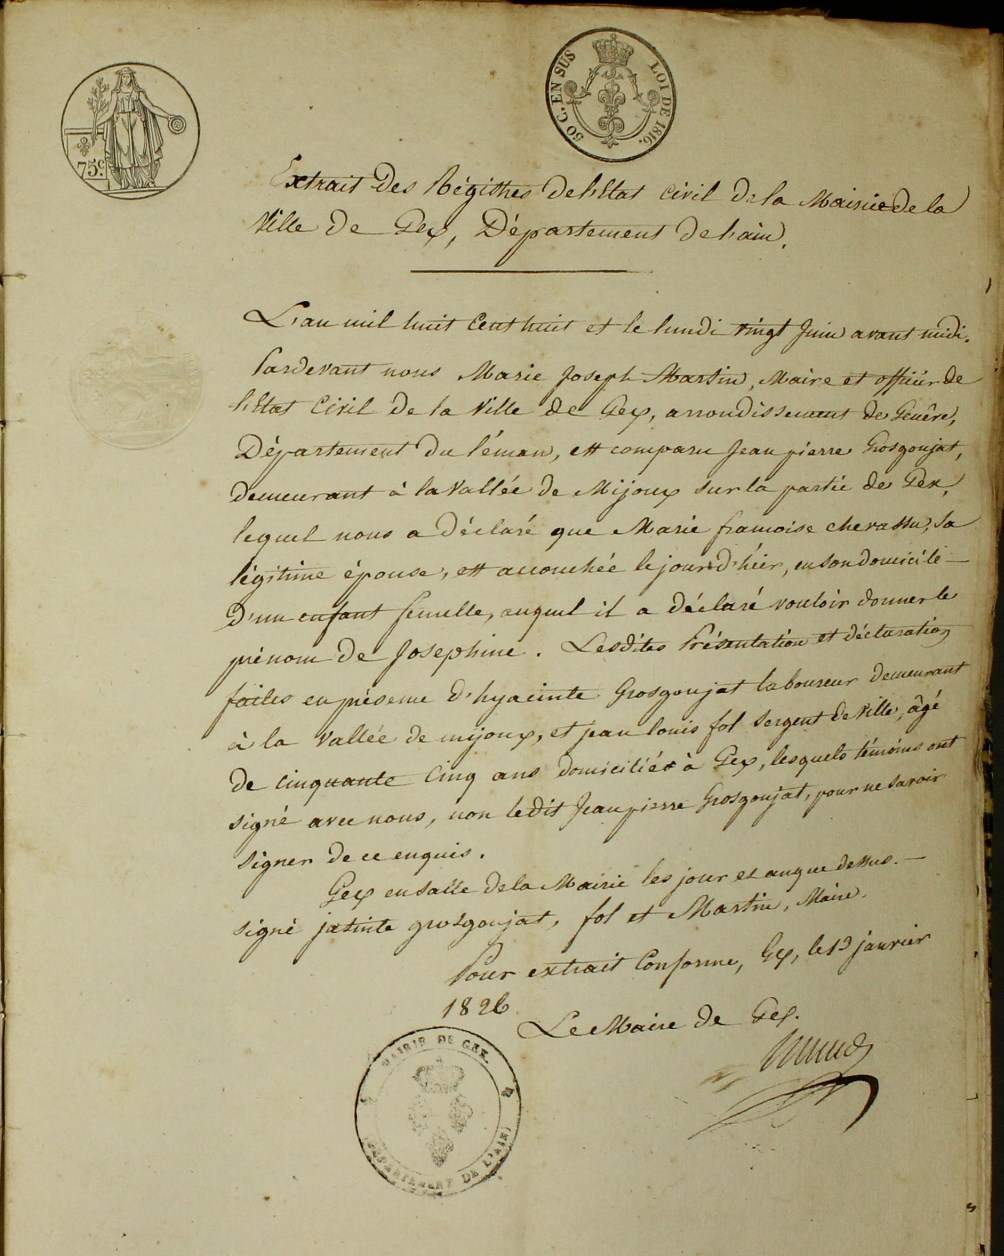 75c.
50 C. EN SUS LOI DE 1816.
Extrait Des Régistres de l'Etat Civil de la Mairie de la
Ville de Gex, Département de l'ain.
L'an mil huit Cent huit et le lundi vingt Juin avant midi.
Pardevant nous Marie Joseph Martin, Maire et officier de
l'Etat Civil de la Ville de Gex, arrondissement de Genêve,
Département du Léman, est comparu Jean pierre Grosgoujat,
demeurant à la Vallée de Mijoux sur la partie de Gex,
lequel nous a déclaré que Marie françoise chevassu, sa
légitime épouse, est accouchée le jour d'hier, en son domicile
D'un enfant femelle, auquel il a déclaré vouloir donner le
prénom de Josephine. Lesdites Présentation et déclaration
faites en présence d'hyacinte Grosgoujat laboureur demeurant
à la Vallée de mijoux, et jean louis fol sergent de Ville, âgé
de cinquante Cinq ans domiciliés à Gex, lesquels témoins ont
signé avec nous, non ledit Jean pierre Grosgoujat, pour ne savoir
signer de ce enquis.
Gex en salle de la Mairie les jour et an que dessus.
signé jasinte grosgoujat, fol et Martin, Maire.
Pour extrait Conforme, Gex, le 13 janvier
1826
Le Maire de Gex.
MAIRIE DE GEX.
(DEPARTEMENT DE L'AIN)